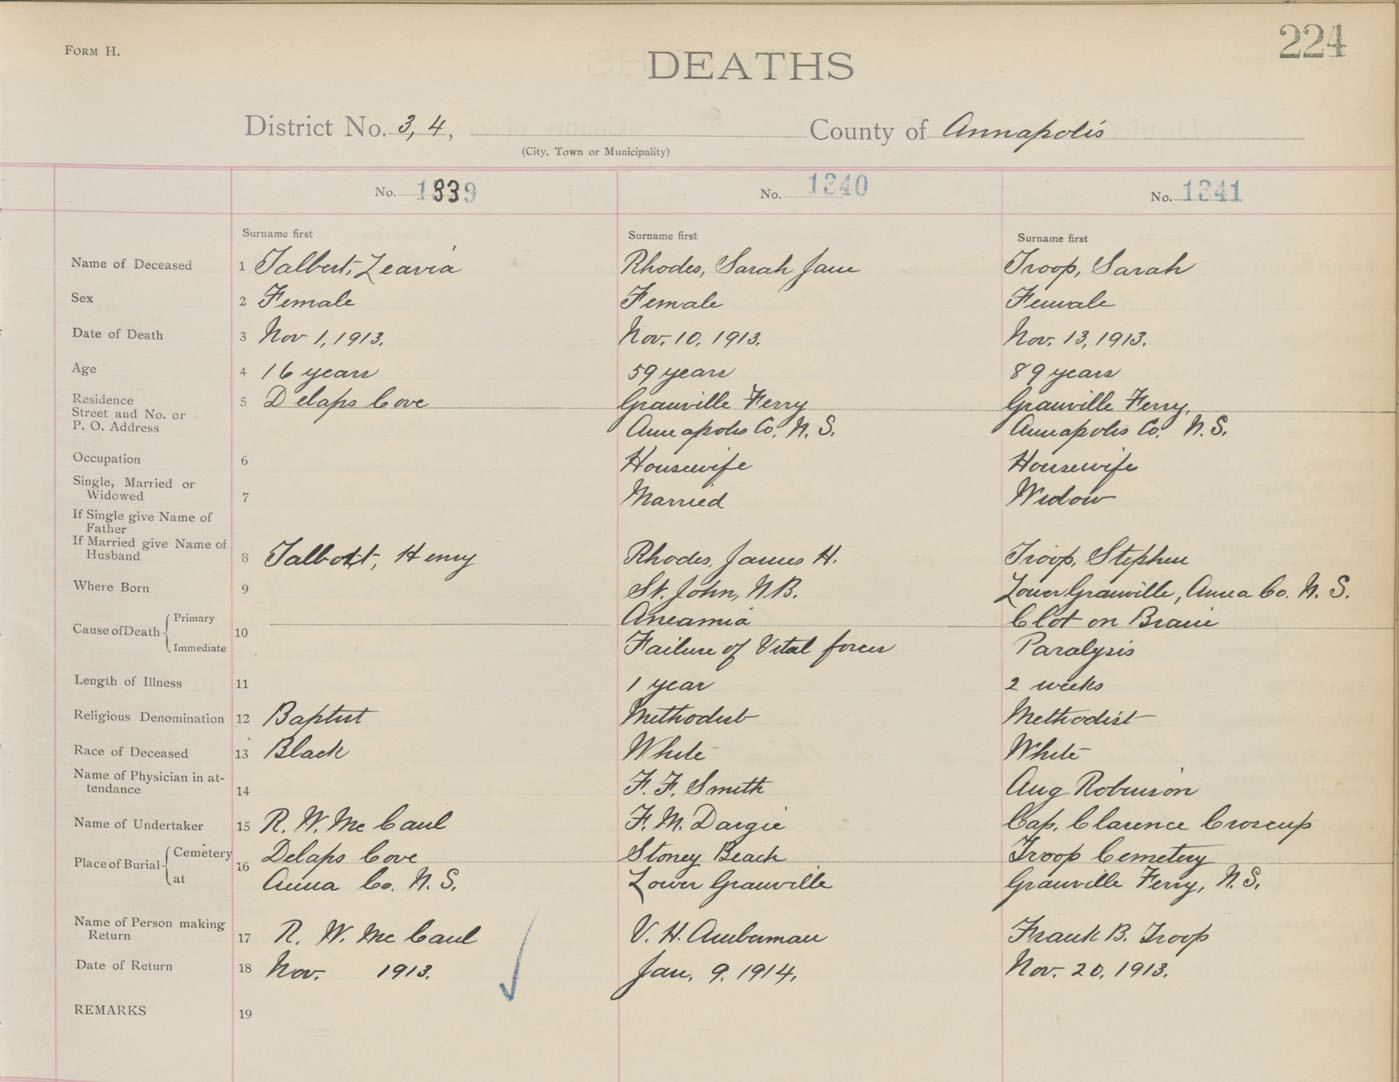 FORM H.
224
DEATHS
District No. 3, 4, County of Annapolis
(City, Town or Municipality)
No. 1339 No. 1340 No. 1341
Surname first Surname first Surname first
Name of Deceased 1 Talbert, Zeavia Rhodes, Sarah Jane Troop, Sarah
Sex 2 Female Female Female
Date of Death 3 Nov 1, 1913. Nov. 10, 1913. Nov. 13, 1913.
Age 4 16 years 59 years 89 years
Residence 5 Delaps Cove Granville Ferry Granville Ferry,
Street and No. or
P. O. Address Annapolis Co. N. S. Annapolis Co. N. S.
Occupation 6 Housewife Housewife
Single, Married or
Widowed 7 Married Widow
If Single give Name of
Father
If Married give Name of
Husband 8 Talbott, Henry Rhodes, James H. Troop, Stephen
Where Born 9 St. John, N.B. Lower Granville, Anna Co. N. S.
Cause of Death 10 Primary Aneamia Clot on Brain
Immediate Failure of Vital forces Paralysis
Length of Illness 11 1 year 2 weeks
Religious Denomination 12 Baptist Methodist Methodist
Race of Deceased 13 Black White White
Name of Physician in at-
tendance 14 F. F. Smith Aug Robinson
Name of Undertaker 15 R. W. Mc Caul F. M. Dargie Cap. Clarence Croscup
Place of Burial 16 Cemetery Delaps Cove Stoney Beach Troop Cemetery
at Anna Co. N. S. Lower Granville Granville Ferry, N. S.
Name of Person making
Return 17 R. W. Mc Caul V. H. Amberman Frank B. Troop
Date of Return 18 Nov. 1913. Jan. 9. 1914. Nov. 20, 1913.
REMARKS 19